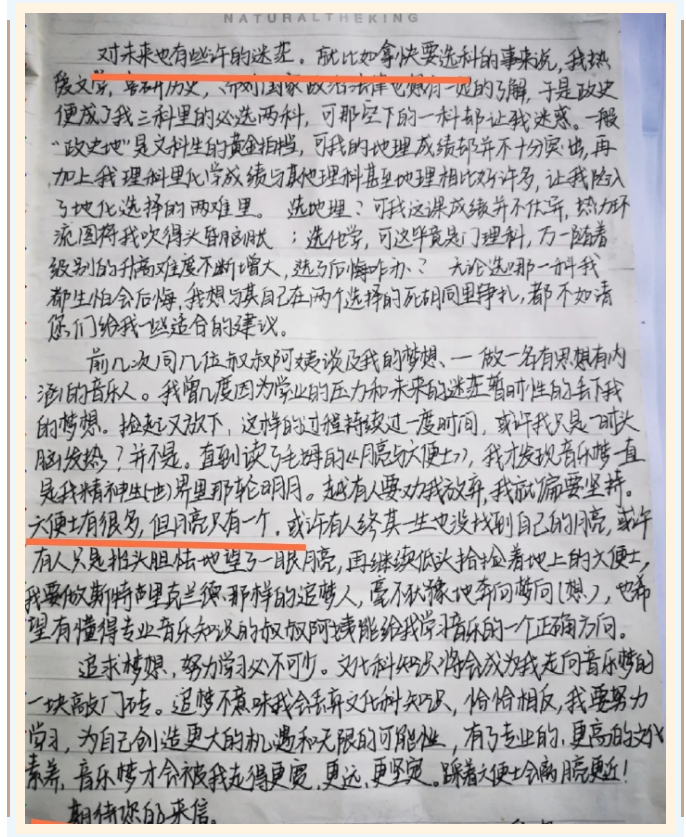 NATURALTHEKING
对未来也有些许的迷茫。就比如拿快要选科的事来说，我热
爱文学，喜研历史，亦对国家政治法律也想有一定的了解，于是政史
便成了我三科里的必选两科，可那空下的一科却让我迷惑。一般
“政史地”是文科生的黄金相档，可我的地理成绩却并不十分突出，再
加上我理科里化学成绩与其他理科甚至地理相比好许多，让我陷入
了地化选择的两难里。选地理？可我这课成绩并不优异，热力环
流图将我吹得头昏脑胀；选化学，可这毕竟是门理科，万一随着
级别的升高难度不断增大，选了后悔咋办？无论选哪一科我
都生怕会后悔，我想与其自己在两个选择的死胡同里挣扎，都不如请
您们给我一些适合的建议。
前几次同几位叔叔阿姨谈及我的梦想、一做一名有思想有内
涵的音乐人。我曾几度因为学业的压力和未来的迷茫暂时性的丢下我
的梦想。捡起又放下，这样的过程持续过一度时间，或许我只是一时头
脑发热？并不是。直到读了毛姆的《月亮与六便士》，我才发现音乐梦一直
是我精神生(世)界里那轮明月。越有人要劝我放弃，我就偏要坚持。
六便士有很多，但月亮只有一个。或许有人终其一生也没找到自己的月亮，或许
有人只是抬头胆怯地望了一眼月亮，再继续低头拾捡着地上的六便士，
我要做斯特里克兰德那样的追梦人，毫不犹豫地奔向梦向(想)，也希
望有懂得专业音乐知识的叔叔阿姨能给我学习音乐的一个正确方向。
追求梦想，努力学习必不可少。文化科知识将会成为我走向音乐梦的
一块敲门砖。追梦不意味我会丢弃文化科知识，恰恰相反，我要努力
学习，为自己创造更大的机遇和无限的可能性，有了专业的，更高的文化
素养，音乐梦才会被我走得更宽，更远，更坚定。踩着六便士会离月亮更近！
期待您的来信。